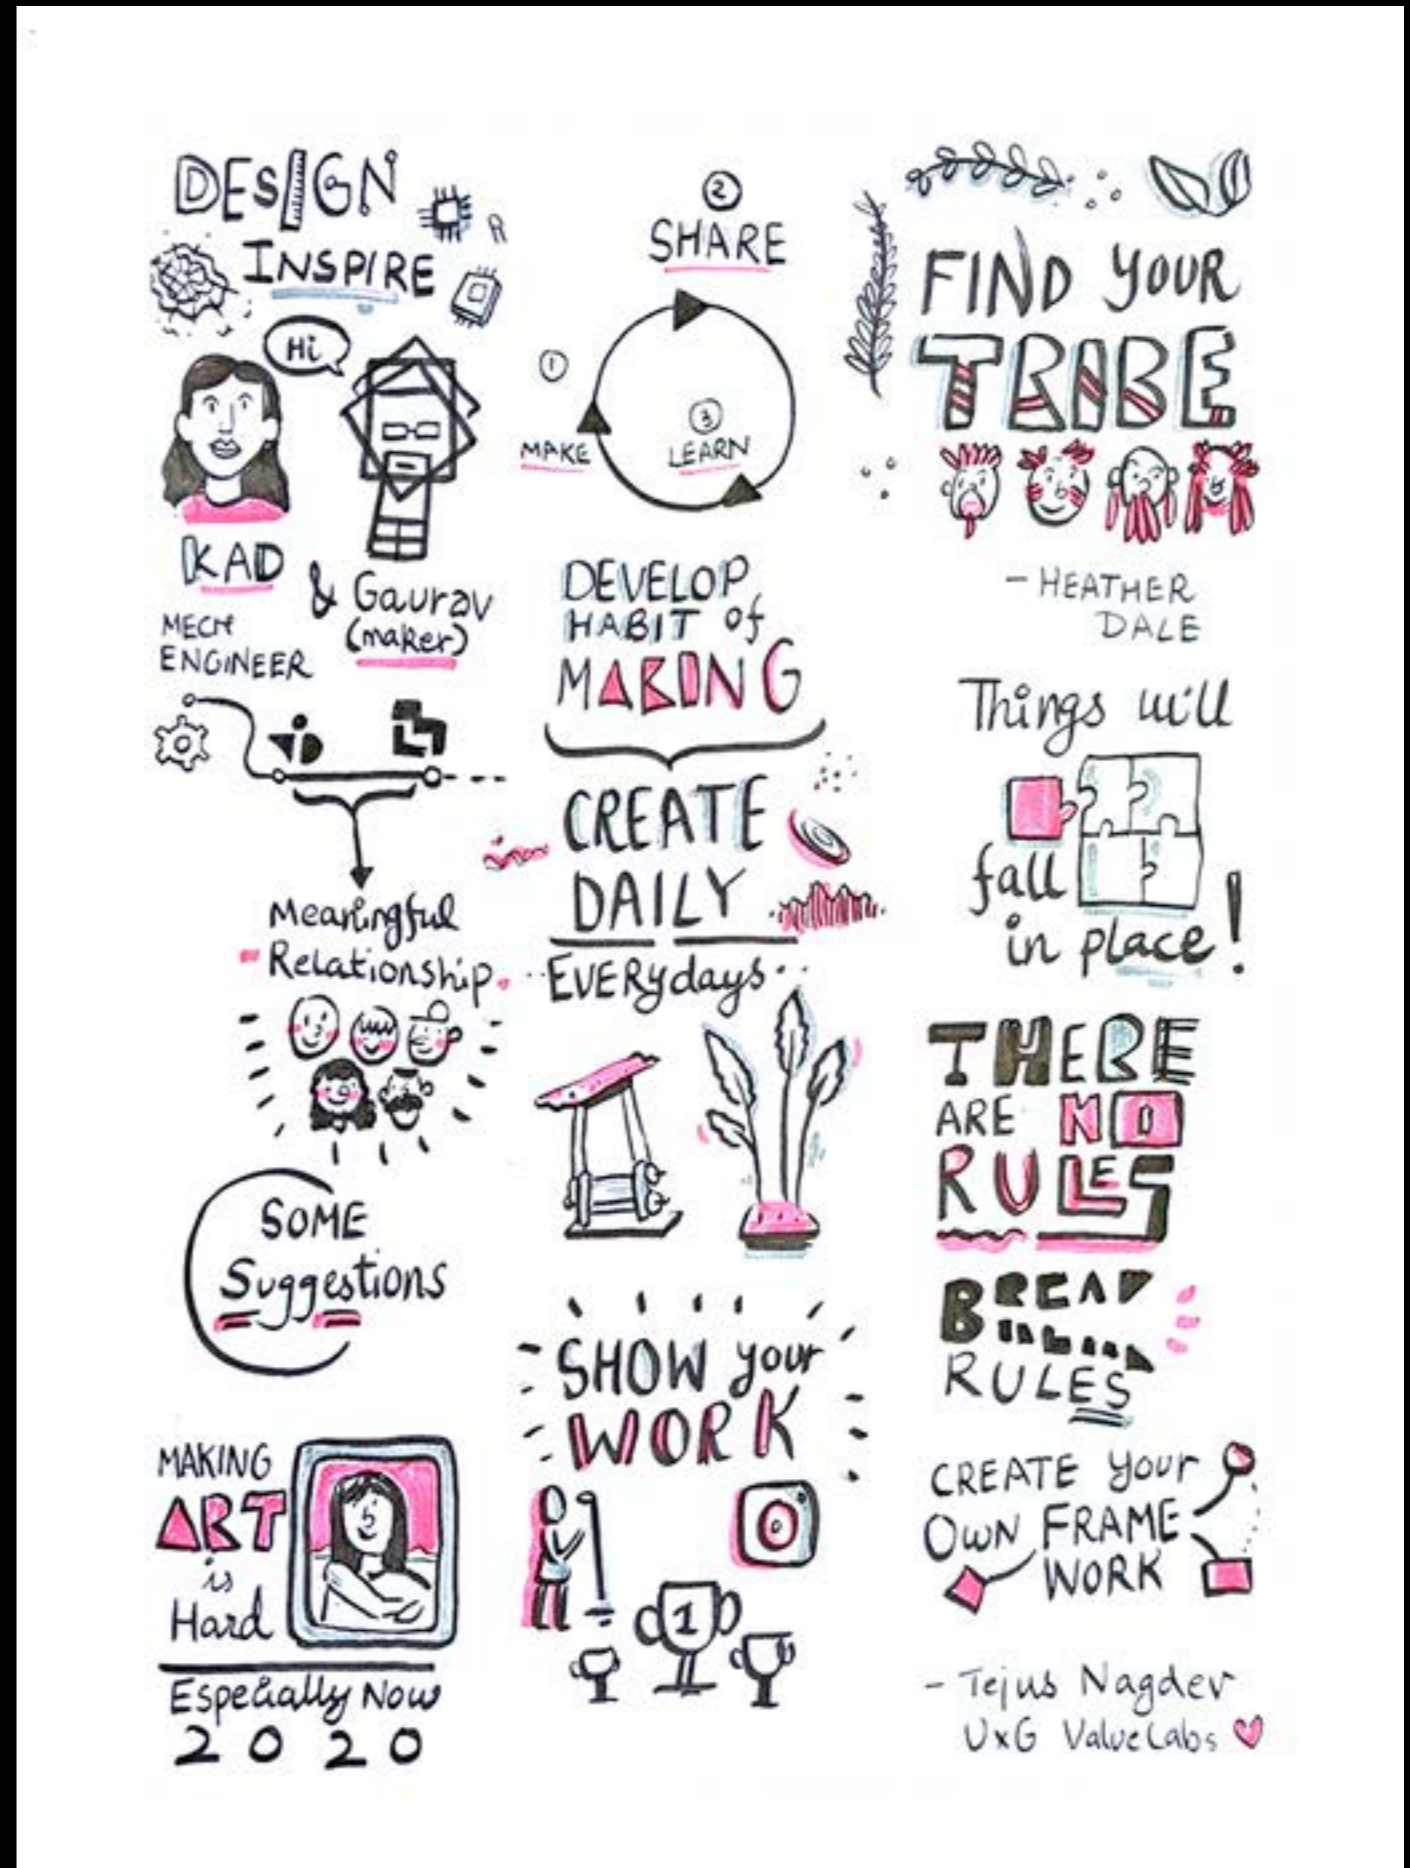 DESIGN
INSPIRE
Hi
KAD
& Gaurav
(maker)
MECH
ENGINEER
Meaningful
Relationship
SOME
Suggestions
MAKING
ART
is
Hard
Especially Now
2020
2
SHARE
1
MAKE
3
LEARN
DEVELOP
HABIT of
MAKING
CREATE
DAILY
EVERydays
SHOW your
WORK
1
FIND YOUR
TRIBE
- HEATHER
DALE
Things will
fall
in place!
THERE
ARE NO
RULES
BREAK
RULES
CREATE your
OWN FRAME
WORK
- Tejus Nagdev
UxG ValueLabs